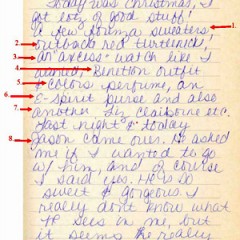 Today was Christmas, I
got lots of good stuff!
A few Forenza sweaters 1.
2. outback red turtleneck,
3. an "Axcess" watch like I
4. wanted, Benetton outfit
5. + colors perfume, an
6. E-spirit purse and also
7. another, Liz Claiborne etc.
Last night & today
8. Jason came over. He asked
me if I wanted to go
w/ him, and of course
I said yes. He is so
sweet & gorgeous. I
really don't know what
he sees in me, but
it seems he really